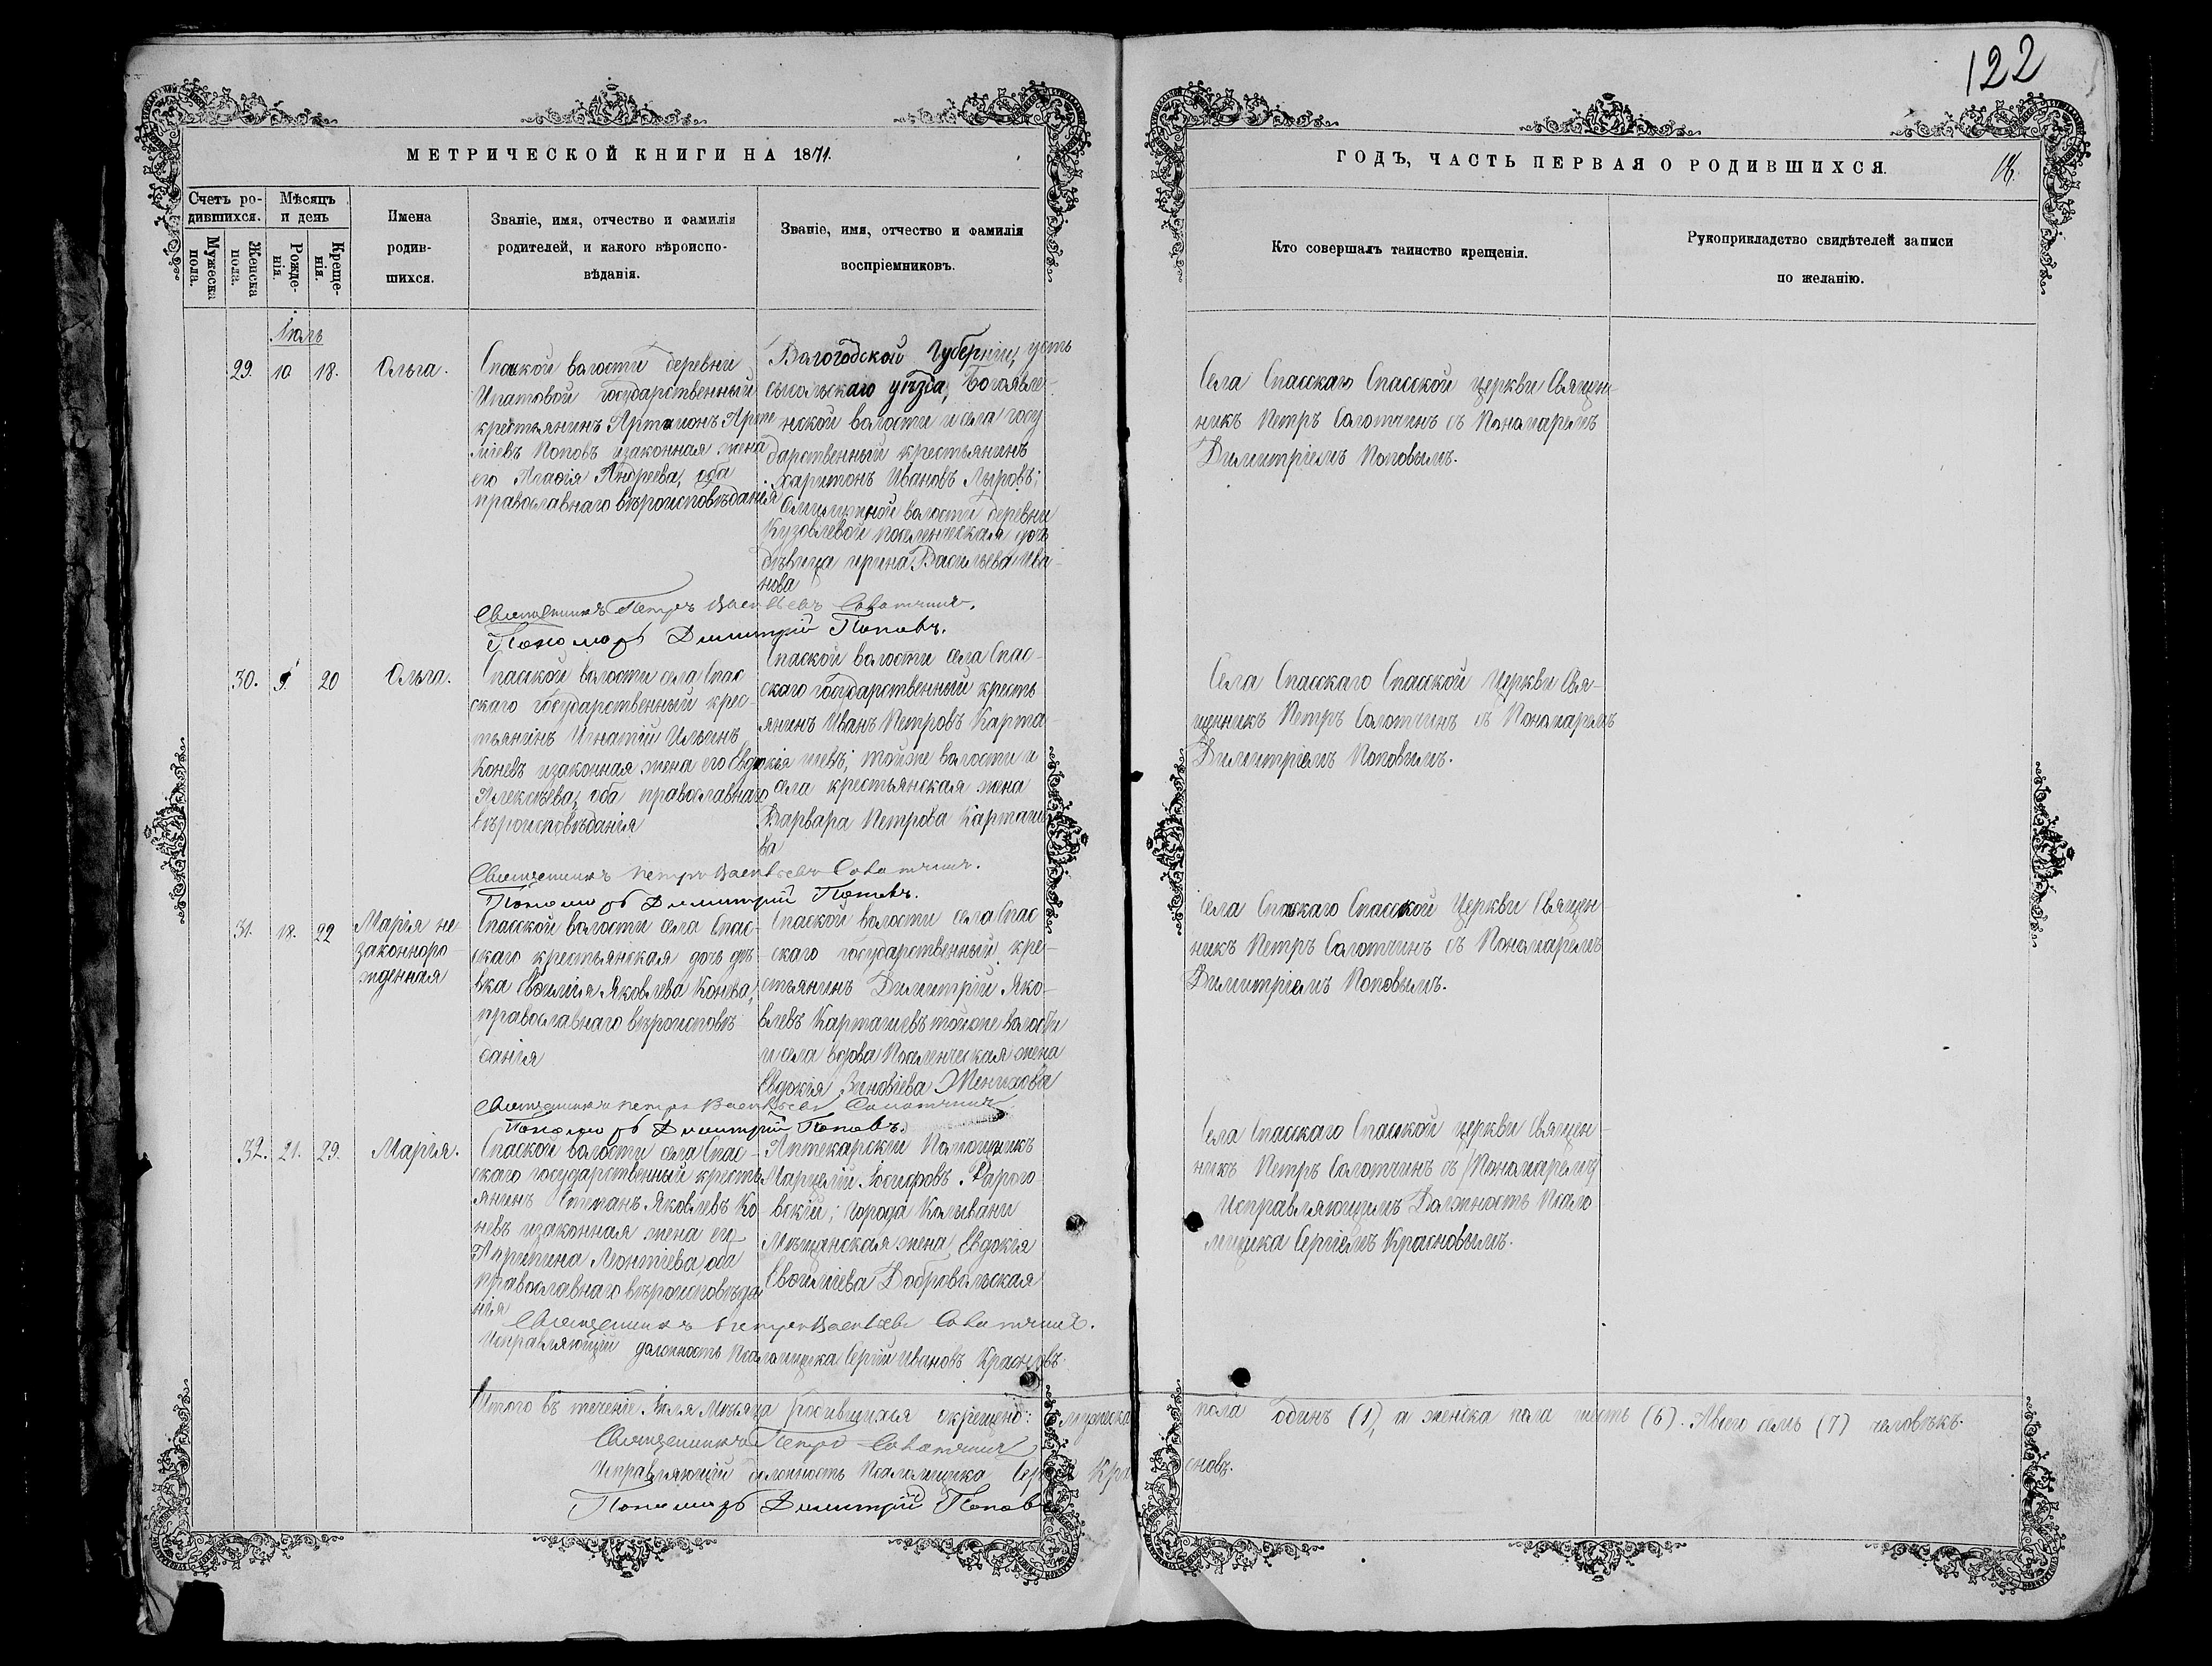 122
МЕТРИЧЕСКОЙ КНИГИ НА 1871.
Счетъ ро-
дившихся.
Мужеска
пола.
Женска
пола.
Мѣсяцъ
и день
Рожде-
нія.
Креще-
нія.
Имена
родив-
шихся.
Званіе, имя, отчество и фамилія
родителей, и какого вѣроиспо-
вѣданія.
Званіе, имя, отчество и фамилія
воспріемниковъ.
ГОДЪ, ЧАСТЬ ПЕРВАЯ О РОДИВШИХСЯ.
Кто совершалъ таинство крещенія.
Рукоприкладство свидѣтелей записи
по желанію.
Іюль
29. 10 18. Ольга.
Спаской волости деревни
Ипатовой государственный
крестьянинъ Артамонъ
Поповъ изаконная жена
его Агафія Андреева, оба
православнаго вѣроисповѣданія
Вологодской Губерніи, усть
сысольскаго уѣзда, Богоявле-
нской волости и села госу
дарственный крестьянинъ
Харитонъ Ивановъ Лыровъ;
волости деревни
поселенческая дочь
дѣвица ирина Васильева Ива-
нова
Села Спасскаго Спасской церкви Священ-
никъ Петръ Солотчинъ съ Пономаремъ
Димитріемъ Поповымъ.
Священникъ Петръ Васильевъ Солотчинъ.
Пономарь Димитрій Поповъ.
30. 9. 20 Ольга.
Спасской волости села Спас
скаго государственный крес-
тьянинъ Игнатій Ильинъ
Коневъ изаконная жена его Евдокія
Алексѣева, оба православнаго
вѣроисповѣданія
Спаской волости села Спас-
скаго государственный кресть
янинъ Иванъ Петровъ Карта-
шевъ; тойже волости и
села крестьянская жена
Варвара Петрова Карташе
ва
Села Спасскаго Спасской Церкви Свя-
щенникъ Петръ Солотчинъ съ Пономаремъ
Димитріемъ Поповымъ.
Священникъ Петръ Васильевъ Солотчинъ.
Пономарь Димитрій Поповъ.
31. 18. 22 Марія не-
законноро-
жденная
Спасской волости села Спас-
скаго крестьянская дочь дѣ
вка Яковлева Конева,
православнаго вѣроисповѣ
данія
Спаской волости села Спас-
скаго государственный кре-
стьянинъ Димитрій Яко-
влевъ Карташевъ тойже волости
и села вдова Поселенческая жена
Евдокія Зиновіева Женихова
Села Спаскаго Спасской Церкви Священ-
никъ Петръ Солотчинъ съ Пономаремъ
Димитріемъ Поповымъ.
Священникъ Петръ Васильевъ Солотчинъ
Пономарь Димитрій Поповъ.
32. 21. 29. Марія.
Спаской волости села Спас-
скаго государственный кресть
янинъ Степанъ Яковлевъ Ко
невъ изаконная жена его
Леонтіева, оба
православнаго вѣроисповѣда
нія
Аптекарскій Помощникъ
Іосифовъ
вскій; города Колывани
Мѣщанская жена Евдокія
Добровольская
Села Спасскаго Спаской церкви Священ-
никъ Петръ Солотчинъ съ
Исправляющимъ Должность Псало
мщика Сергіемъ Красновымъ.
Священникъ Петръ Васильевъ Солотчинъ.
Исправляющій должность Псаломщика Сергій Ивановъ Красновъ.
Итого въ теченіе Іюля Мѣсяца родившихся окрещено: мужеска пола одинъ (1), а женска пола шесть (6). Авсего семь (7) человѣкъ.
Священникъ Петръ Солотчинъ
Исправляющій должность Псаломщика Сергій Красновъ.
Пономарь Димитрій Поповъ